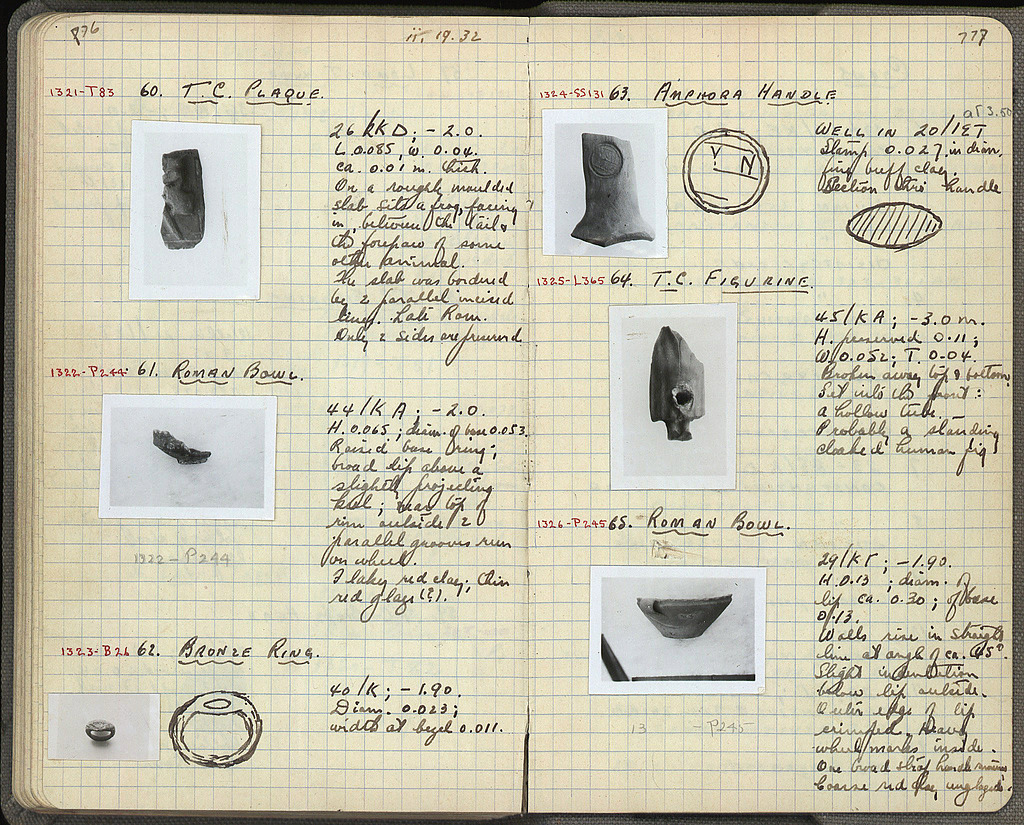 776
ii. 19. 32
1321-T83 60. T.C. PLAQUE.
26/KKD; -2.0.
L. 0.085, W. 0.04.
ca. 0.01 m. thick.
On a roughly moulded
slab sits a frog, facing
in, between the tail &
the forepaw of some
other animal.
The slab was bordered
by 2 parallel incised
lines. Late Rom.
Only 2 sides are preserved
1322-P244 61. ROMAN BOWL.
44/KA; -2.0.
H. 0.065; diam. of base 0.053.
Raised base ring;
broad lip above a
slightly projecting
keel; near top of
rim outside 2
parallel grooves run
on wheel.
Flaky red clay; thin
red glaze (?).
1322-P244
1323-B26 62. BRONZE RING.
40/K; -1.90.
Diam. 0.023;
width at bezel 0.011.
777
1324-SS131 63. AMPHORA HANDLE
at 3.50
WELL IN 20/ΙΣΤ
Stamp 0.027 in diam.
fine buff clay.
Section thro' handle
V
N
1325-L365 64. T.C. FIGURINE.
45/KA; -3.0 m.
H. preserved 0.11;
W. 0.052; T. 0.04.
Broken away top & bottom.
Set into the front:
a hollow tube.
Probably a standing
cloaked human fig.
1326-P245 65. ROMAN BOWL.
29/KΓ; -1.90.
H. 0.13; diam. of
lip ca. 0.30; of base
0.13.
Walls rise in straight
line at angle of ca. 45°.
Slight indentation
below lip outside.
Outer edge of lip
crimped. Heavy
wheel marks inside.
One broad strap handle
Coarse red clay, unglazed.
13 - P245